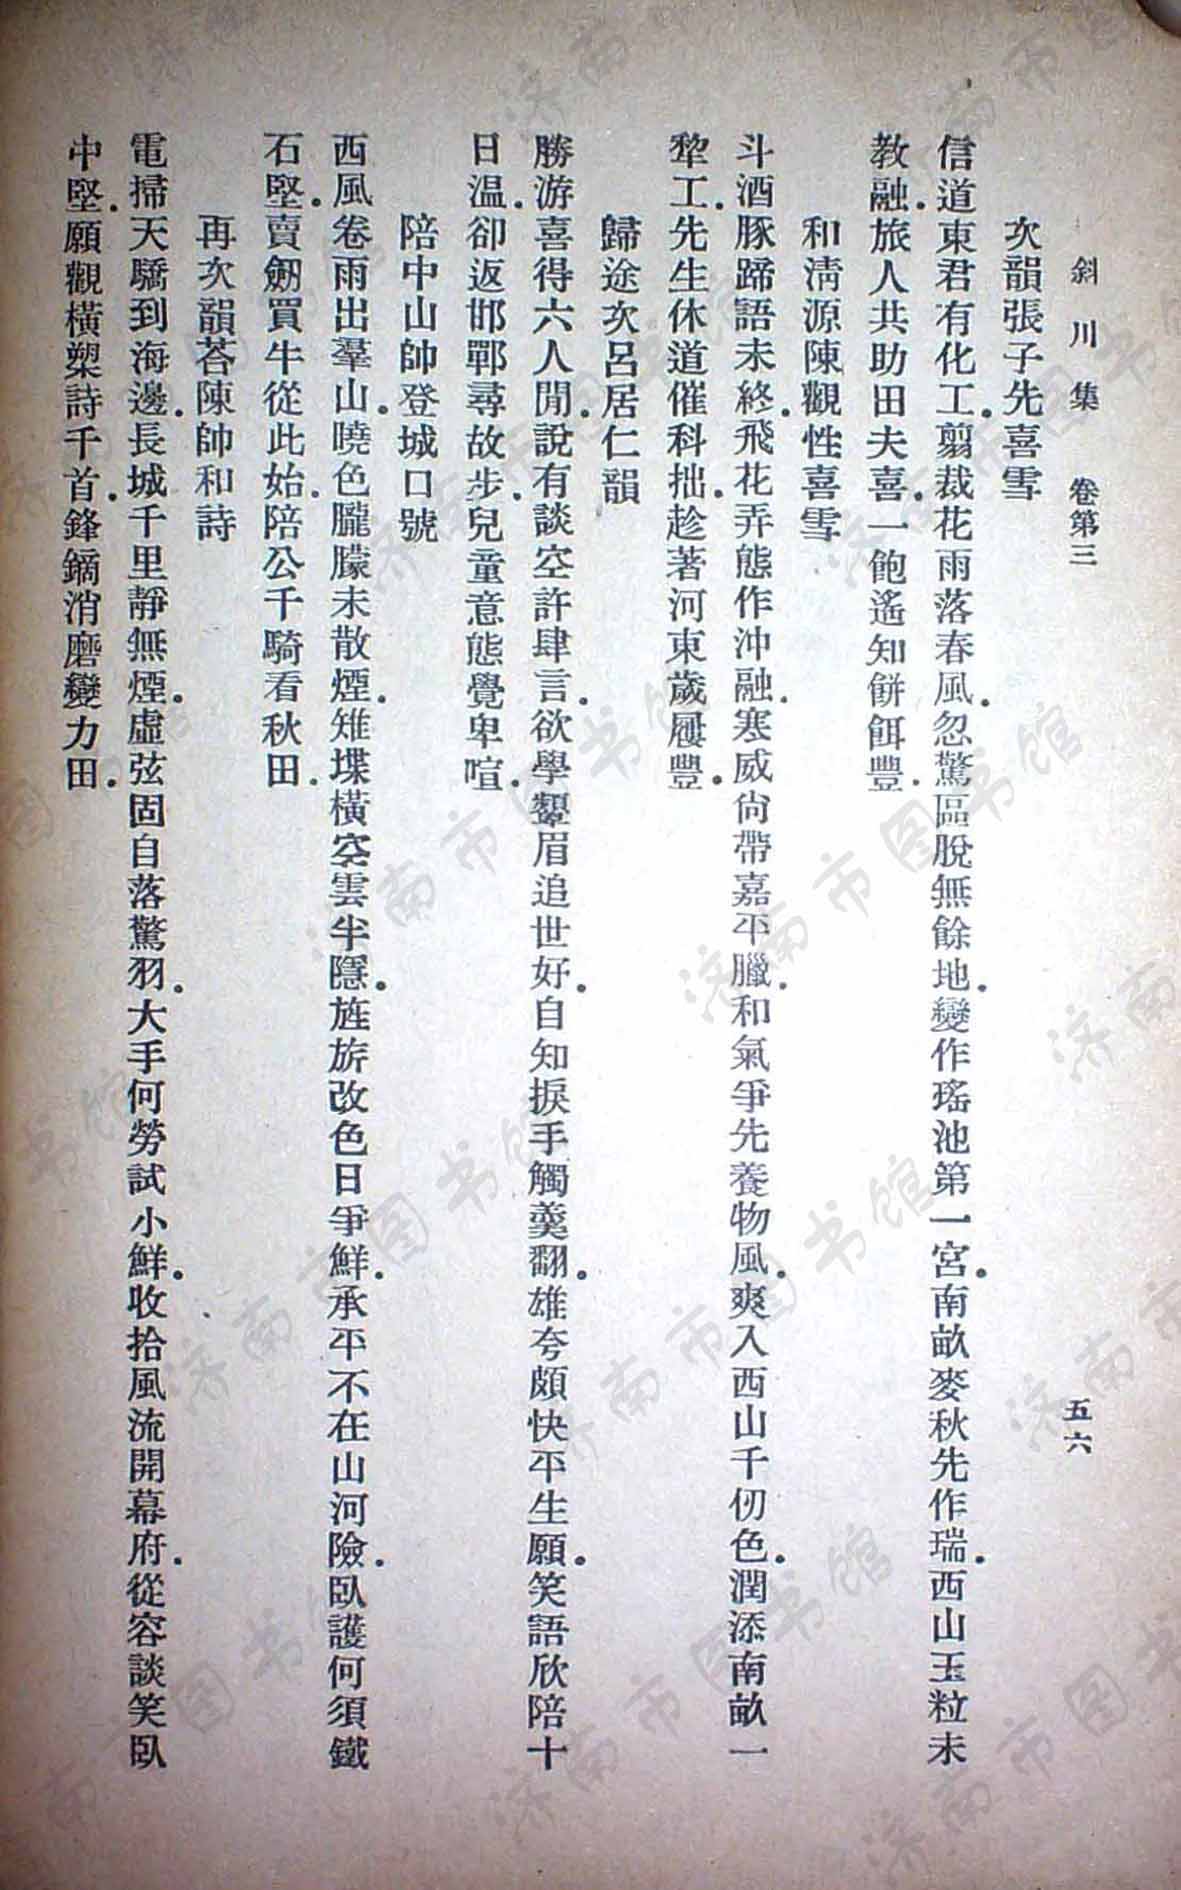 斜川集　卷第三　五六
次韻張子先喜雪
信道東君有化工．翦裁花雨落春風．忽驚區脫無餘地．變作瑤池第一宮．南畝麥秋先作瑞．西山玉粒未
教融．旅人共助田夫喜．一飽遙知餅餌豐．
和淸源陳觀性喜雪
斗酒豚蹄語未終．飛花弄態作沖融．寒威尙帶嘉平臘．和氣爭先養物風．爽入西山千仞色．潤添南畝一
犂工．先生休道催科拙．趁著河東歲屢豐．
歸途次呂居仁韻
勝游喜得六人閒．說有談空許肆言．欲學顰眉追世好．自知捩手觸羹翻．雄夸頗快平生願．笑語欣陪十
日温．卻返邯鄲尋故步．兒童意態覺卑喧．
陪中山帥登城口號
西風卷雨出羣山．曉色朧朦未散煙．雉堞橫空雲半隱．旌旂改色日爭鮮．承平不在山河險．臥護何須鐵
石堅．賣劒買牛從此始．陪公千騎看秋田．
再次韻荅陳帥和詩
電掃天驕到海邊．長城千里靜無煙．虛弦固自落驚羽．大手何勞試小鮮．收拾風流開幕府．從容談笑臥
中堅．願觀橫槊詩千首．鋒鏑消磨變力田．
济南市图书馆